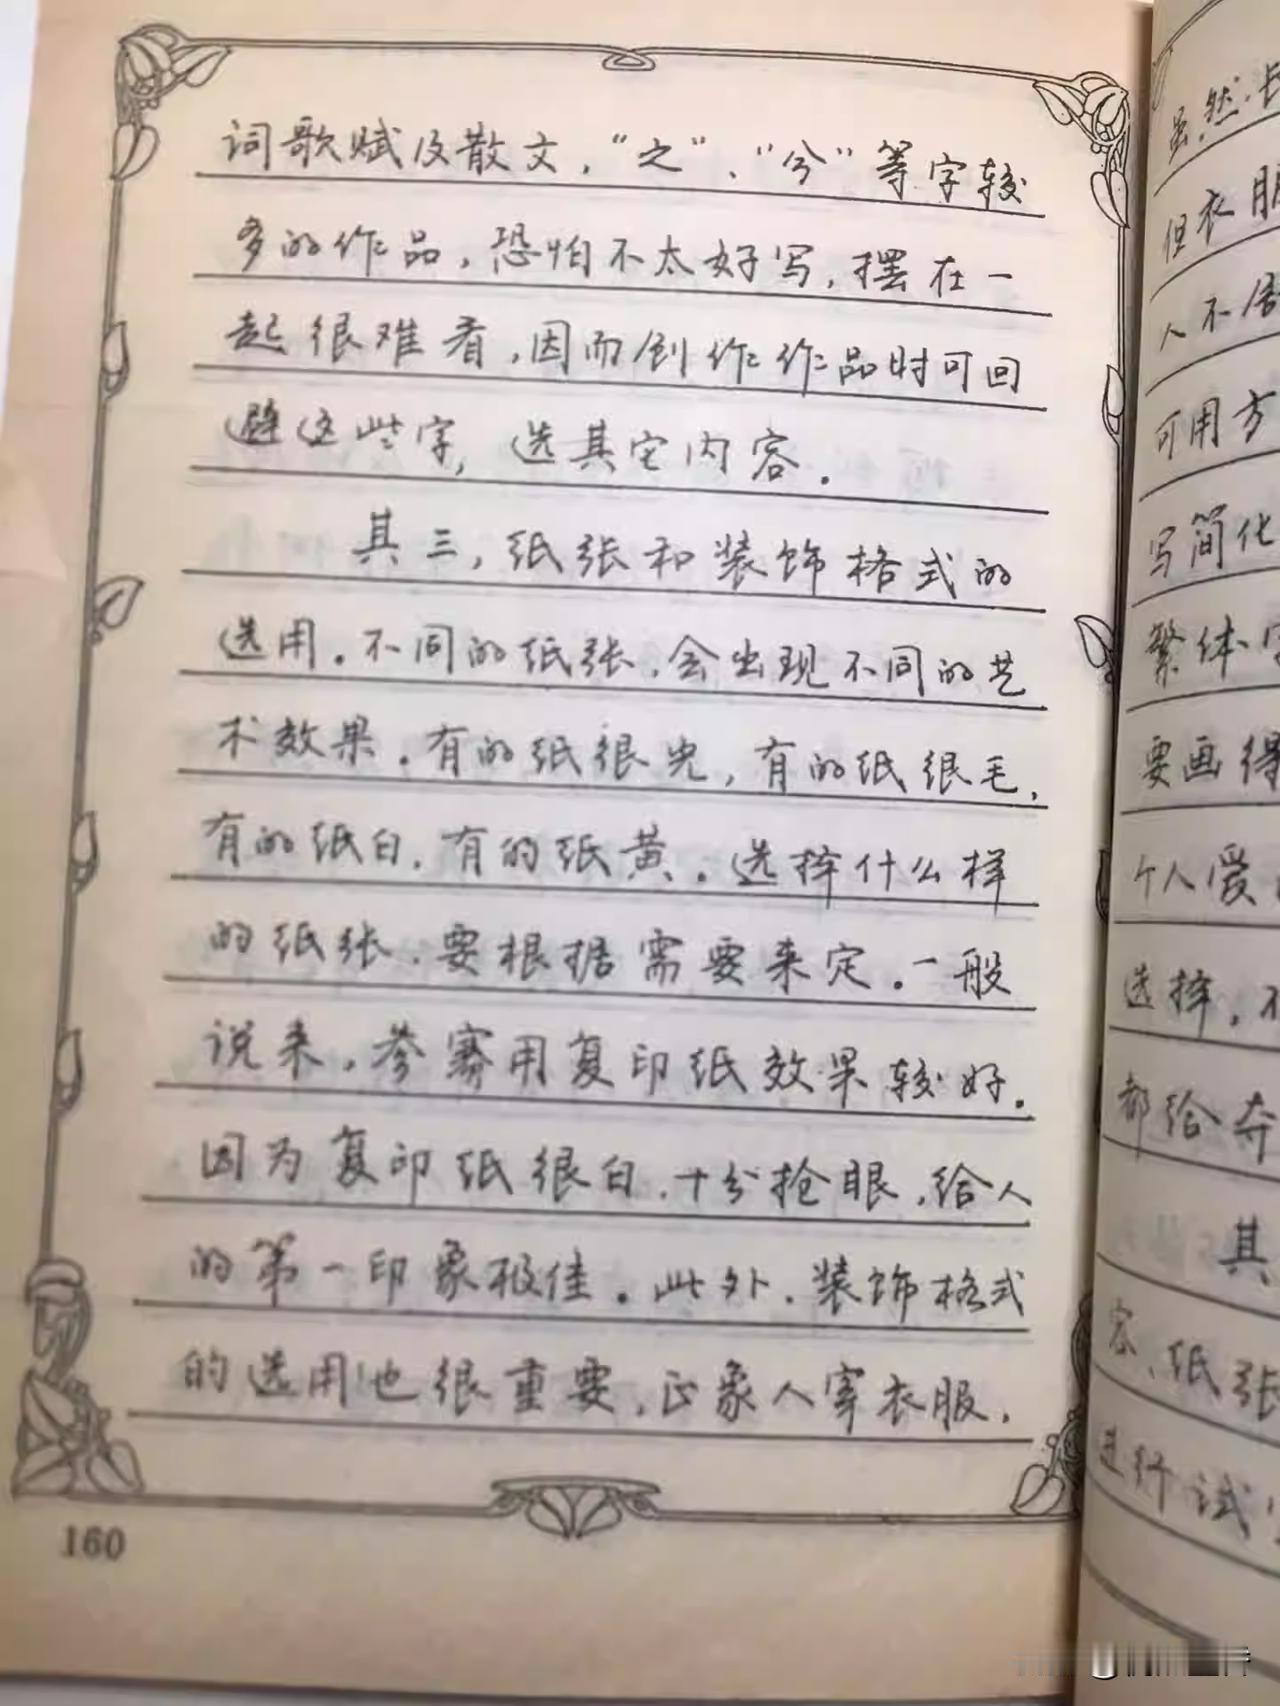 词歌赋及散文，“之”、“兮”等字较
多的作品，恐怕不太好写，摆在一
起很难看，因而创作作品时可回
避这些字，选其它内容。
其三，纸张和装饰格式的
选用。不同的纸张，会出现不同的艺
术效果。有的纸很光，有的纸很毛，
有的纸白，有的纸黄。选择什么样
的纸张，要根据需要来定。一般
说来，参赛用复印纸效果较好。
因为复印纸很白，十分抢眼，给人
的第一印象极佳。此外，装饰格式
的选用也很重要，正象人穿衣服，
160
虽然
但衣服
人不
可用方
写简化
繁体字
要画得
个人爱
选择，不
都给夺
其
容、纸张
进行试写